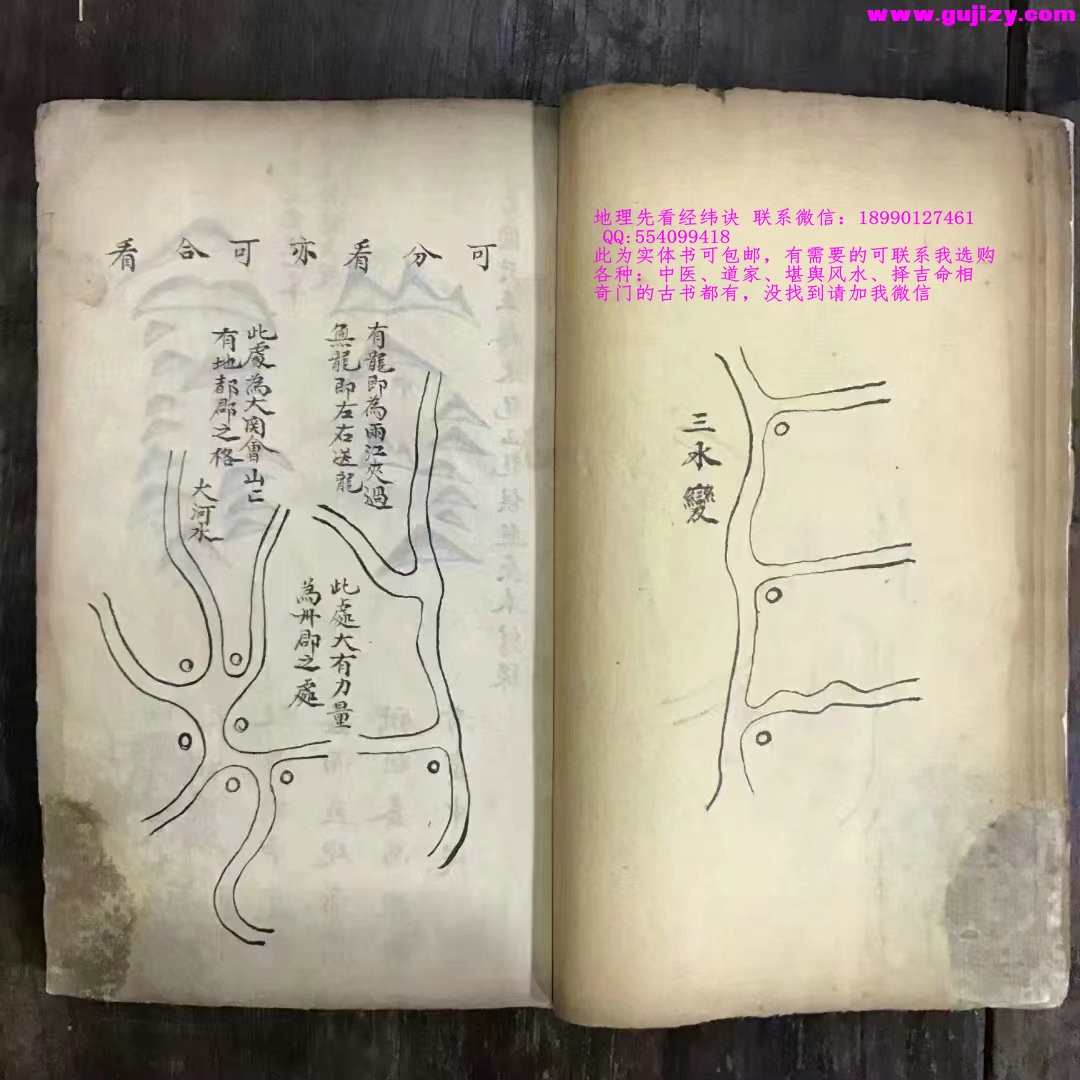 www.gujizy.com
地理先看经纬诀 联系微信：18990127461
QQ:554099418
此为实体书可包邮，有需要的可联系我选购
各种：中医、道家、堪舆风水、择吉命相
奇门的古书都有，没找到请加我微信
三水變
可分看亦可合看
有龍即為兩江夾過
無龍即左右送龍
此處為大関會山亡
有地都郡之格
大河水
此處大有力量
為州郡之處